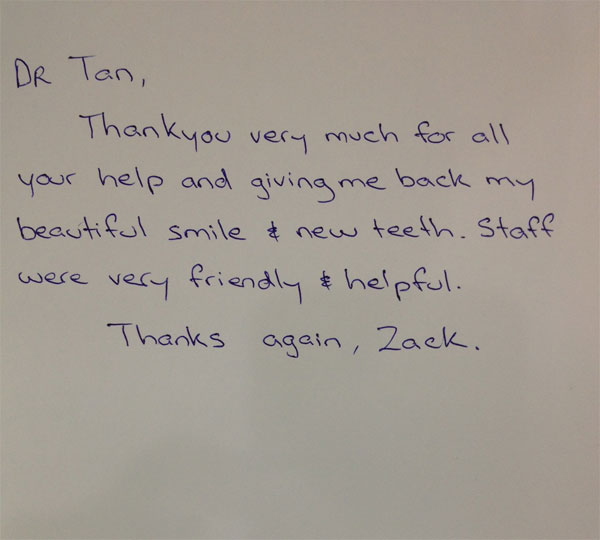 DR Tan,
Thankyou very much for all
your help and giving me back my
beautiful smile & new teeth. Staff
were very friendly & helpful.
Thanks again, Zack.